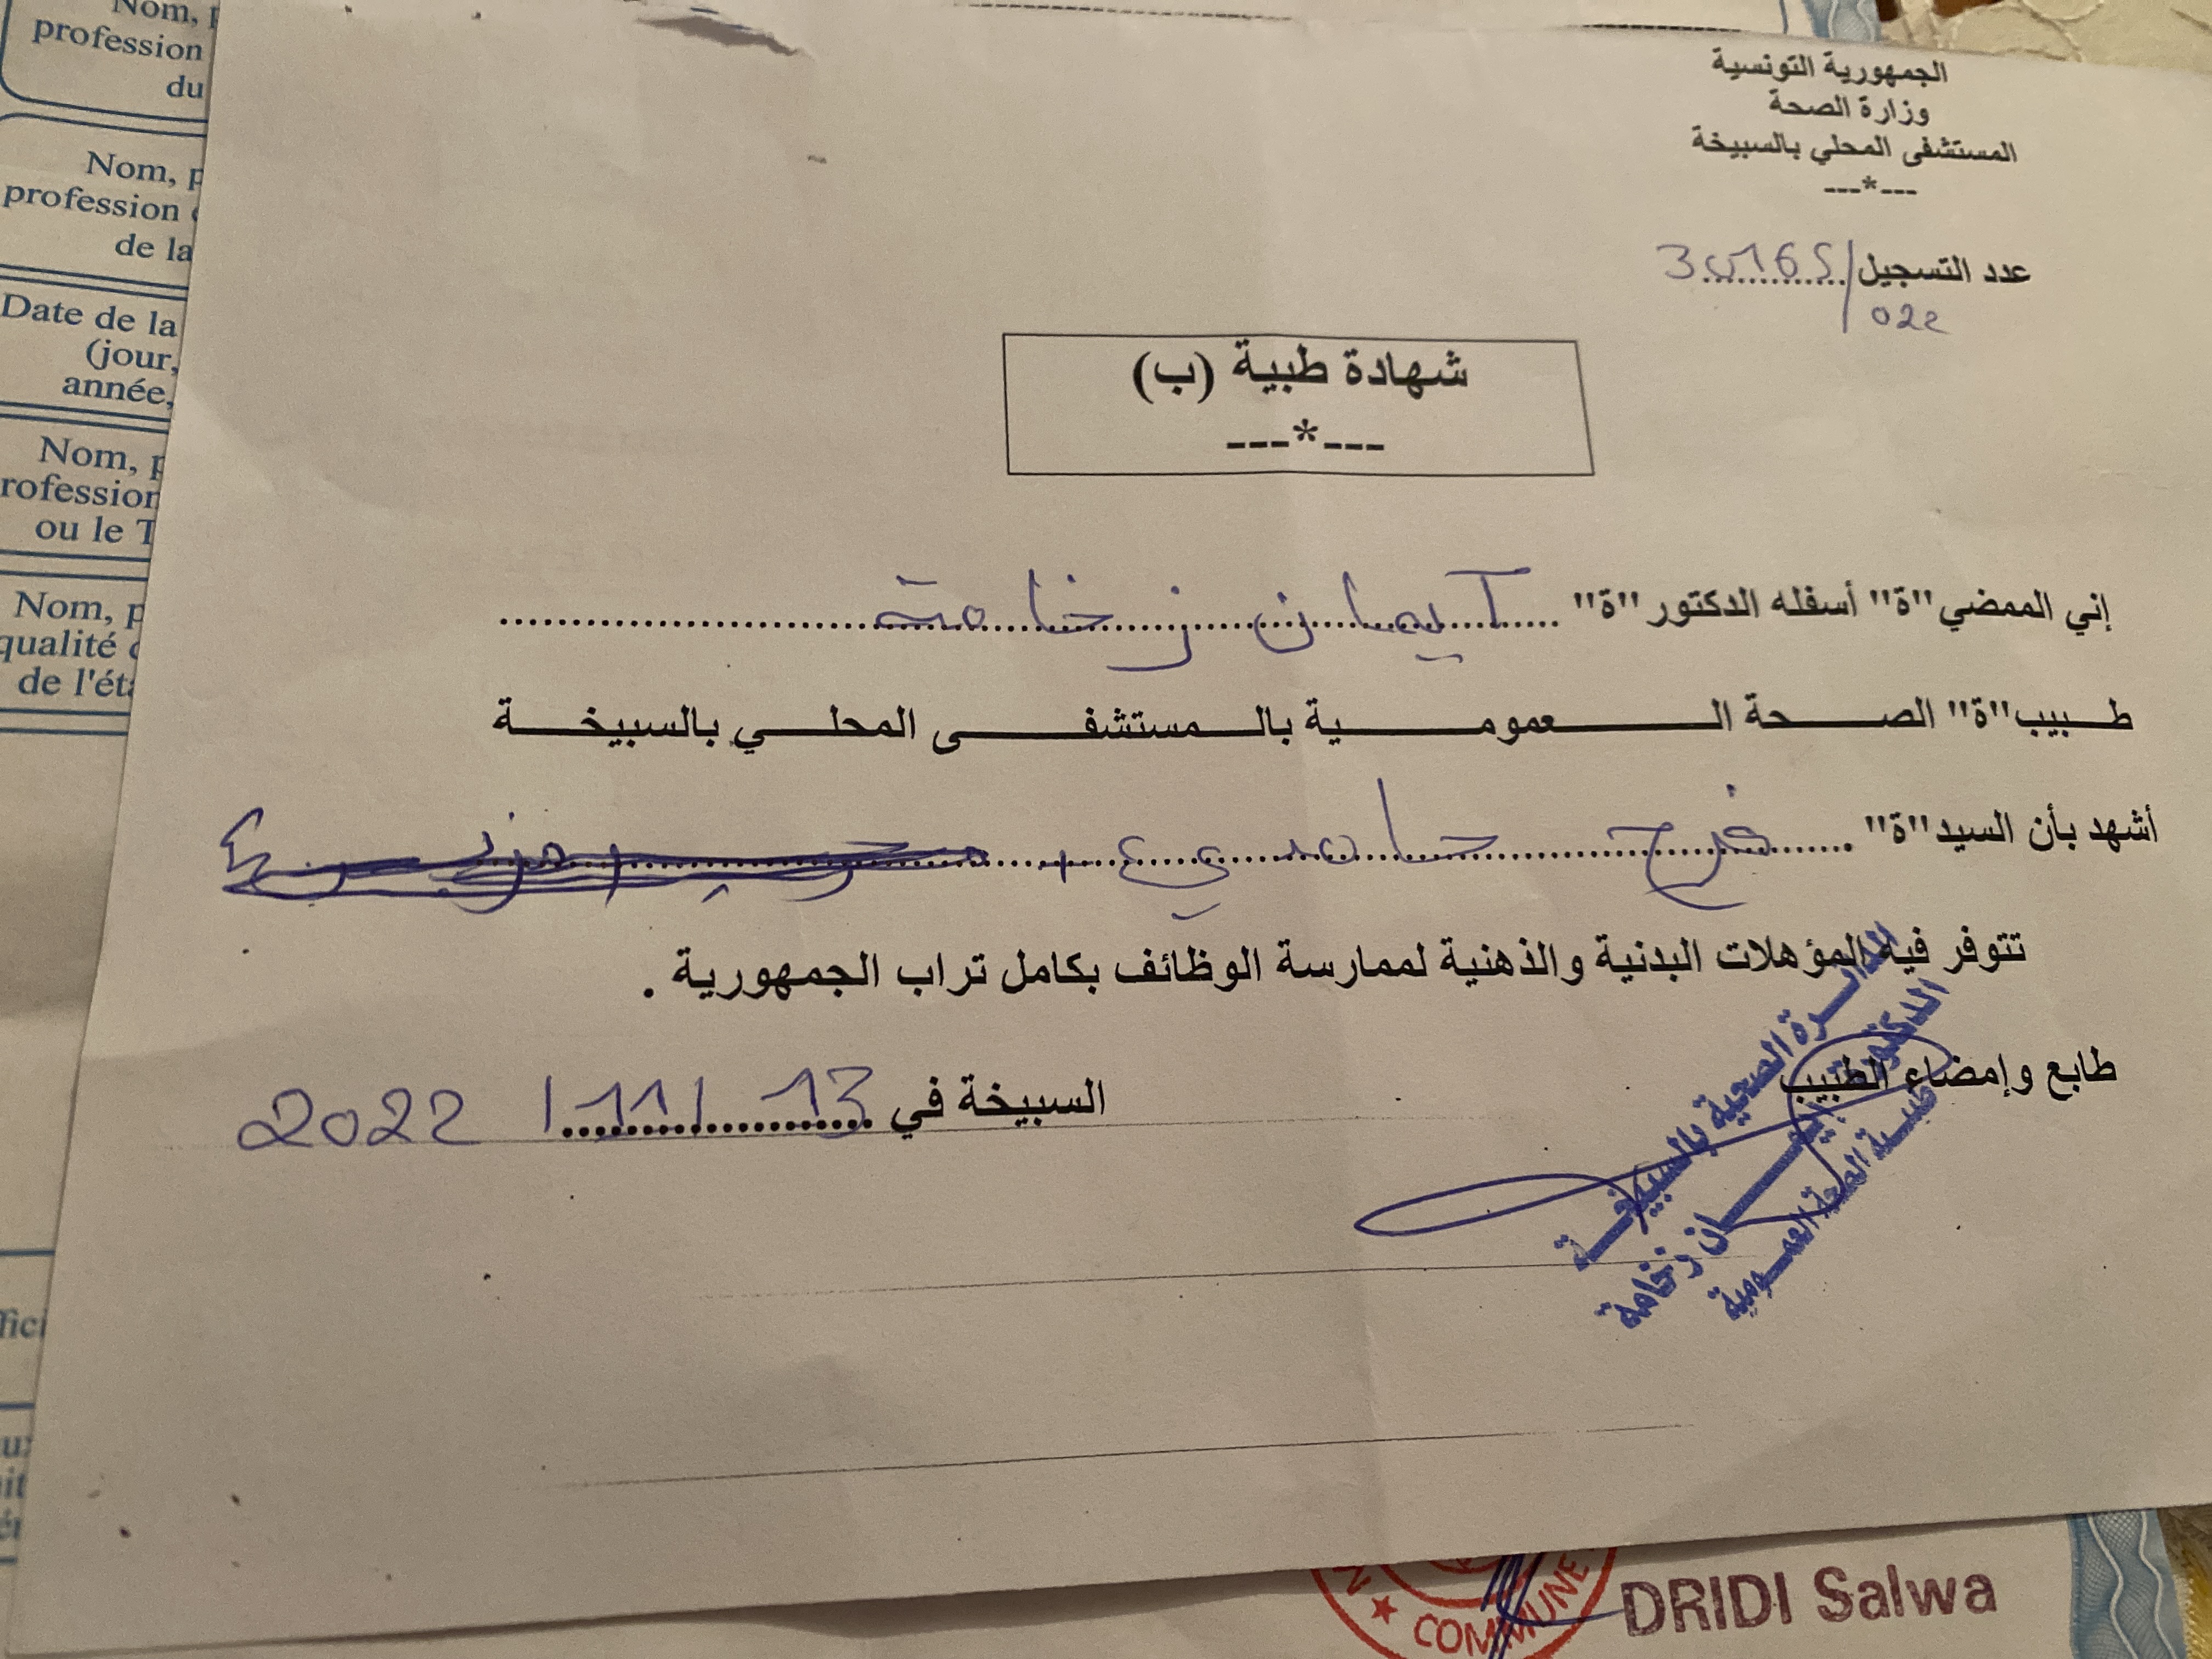 الجمهورية التونسية
وزارة الصحة
المستشفى المحلي بالسبيخة
---*---
عدد التسجيل 30165/
022
شهادة طبية (ب)
---*---
إني الممضي"ة" أسفله الدكتور"ة" آيمان زخامة
طبيب"ة" الصحة العمومية بالمستشفى المحلي بالسبيخة
أشهد بأن السيد"ة" فرح حامدي
تتوفر فيه المؤهلات البدنية والذهنية لممارسة الوظائف بكامل تراب الجمهورية .
طابع وإمضاء الطبيب
السبيخة في 13 /11/ 2022
الدائرة الصحية بالسبيخة
الدكتورة إيمان زخامة
طبيبة الصحة العمومية
Nom,
profession
du
Nom,
profession
de la
Date de la
(jour,
année,
Nom,
ou le
Nom,
qualité
de
COMMUNE
DRIDI Salwa